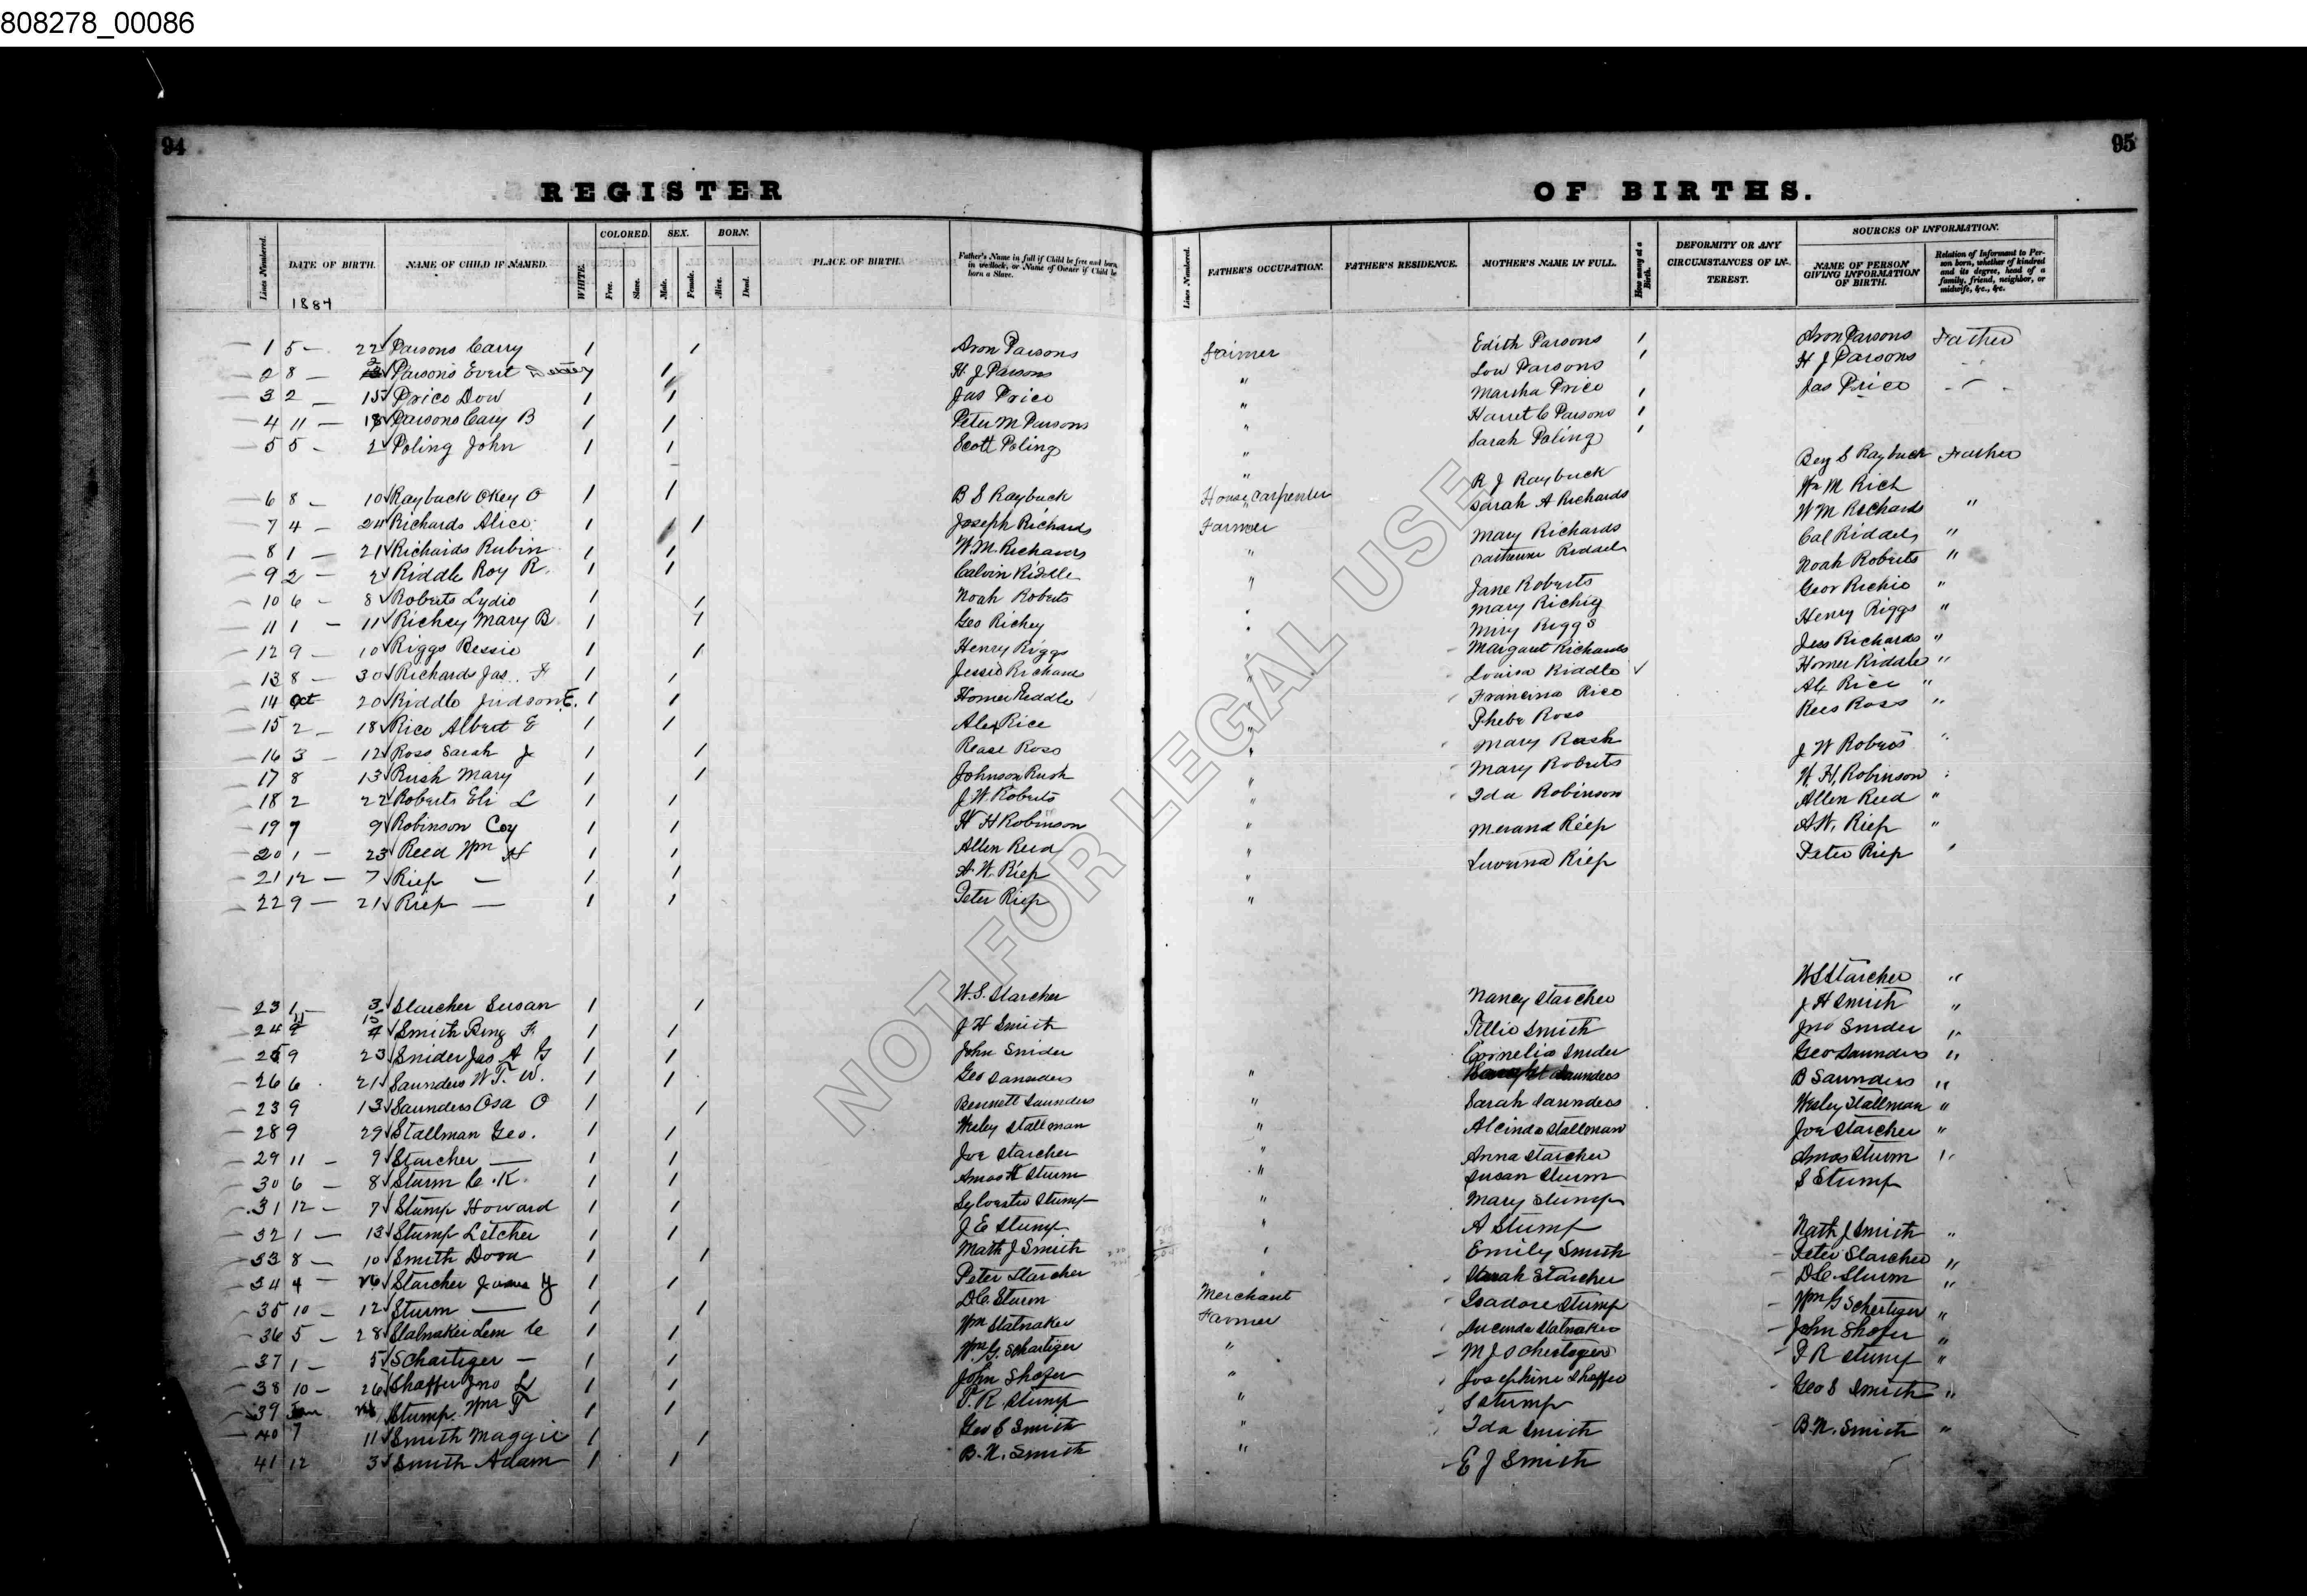 808278_00086
94
95
REGISTER OF BIRTHS.
Lines Numbered.
DATE OF BIRTH.
1884
NAME OF CHILD IF NAMED.
WHITE.
COLORED.
Free.
Slave.
SEX.
Male.
Female.
BORN.
Alive.
Dead.
PLACE OF BIRTH.
Father's Name in full if Child be free and born in wedlock, or Name of Owner if Child be born a Slave.
Lines Numbered.
FATHER'S OCCUPATION.
FATHER'S RESIDENCE.
MOTHER'S NAME IN FULL.
How many at a Birth.
DEFORMITY OR ANY CIRCUMSTANCES OF INTEREST.
SOURCES OF INFORMATION.
NAME OF PERSON GIVING INFORMATION OF BIRTH.
Relation of Informant to Person born, whether of kindred and its degree, head of a family, friend, neighbor, or midwife, &c., &c.
1 5 – 22 Parsons Carry 1 1 Aron Parsons Farmer Edith Parsons 1 Aron Parsons Father
2 8 – Parsons Evert 1 H. J Parsons " Lou Parsons 1 H J Parsons
3 2 – 15 Price Dow 1 1 Jas Price " Marsha Price 1 Jas Price
4 11 – 18 Parsons Cary B 1 1 Peter M Parsons " Harret C Parsons 1
5 5 – 2 Poling John 1 1 Scott Poling " Sarah Poling 1
6 8 – 10 Raybuck Okey O 1 1 B S Raybuck House carpenter R J Raybuck Benj S Raybuck Father
7 4 – 24 Richards Alice 1 1 Joseph Richards Farmer Sarah A Richards Wm M Rich
8 1 – 21 Richards Rubin 1 1 W. M. Richards " Mary Richards W M Richards "
9 2 – 2 Riddle Roy R. 1 1 Calvin Riddle " Catherine Riddel Cal Riddel "
10 6 – 8 Roberts Lydia 1 1 Noah Roberts " Jane Roberts Noah Roberts "
11 1 – 11 Richey Mary B 1 1 Geo Richey " Mary Richey Geor Richie "
12 9 – 10 Riggs Bessie 1 1 Henry Riggs " Miry Riggs Henry Riggs "
13 8 – 30 Richards Jas. H 1 1 Jessie Richards " Margaret Richards Jess Richards "
14 Oct 20 Riddle Judson E. 1 1 Homer Riddle " Louisa Riddle Homer Riddle "
15 2 – 18 Rice Albert E 1 1 Alex Rice " Francina Rice Alx Rice "
16 3 – 12 Ross Sarah J 1 1 Rease Ross " Phebe Ross Rees Ross "
17 8 13 Rush Mary 1 1 Johnson Rush " Mary Rush
18 2 22 Roberts Eli L 1 1 J. W. Roberts " Mary Roberts J W Roberts "
19 7 9 Robinson Coy 1 1 W H Robinson " Ida Robinson W. H. Robinson "
20 1 – 23 Reed Wm H 1 1 Allen Reed " Allen Reed "
21 12 – 7 Riep — 1 1 A. W. Riep " Merand Riep A. W. Riep "
22 9 – 21 Riep — 1 1 Peter Riep " Luverna Riep Peter Riep "
23 1 3 Starcher Susan 1 1 W. S. Starcher Nancy Starcher W S Starcher "
24 11 15 Smith Benj F. 1 1 J H Smith Tillie Smith J H Smith "
25 9 23 Snider Jas A G 1 1 John Snider Cornelia Snider Jno Snider "
26 6 21 Saunders W T. W. 1 1 Geo Saunders " Saunders Geo Saunders "
23 9 13 Saunders Osa O 1 1 Bennett Saunders " Sarah Saunders B Saunders "
28 9 29 Stallman Geo. 1 1 Wesley Stallman " Alcinda Stallman Wesley Stallman "
29 11 – 9 Starcher — 1 1 Joe Starcher " Anna Starcher Joe Starcher "
30 6 – 8 Sturm C. K. 1 1 Amos H Sturm " Susan Sturm Amos Sturm "
31 12 – 7 Stump Howard 1 1 Sylvester Stump " Mary Stump S Stump
32 1 – 13 Stump Letcher 1 1 J E Stump " A Stump
33 8 – 10 Smith Dora 1 1 Math J Smith " Emily Smith Nath J Smith "
34 4 – Starcher 1 1 Peter Starcher " Sarah Starcher Peter Starcher "
35 10 – 12 Sturm — 1 1 D C. Sturm Merchant Isadore Stump D C. Sturm "
36 5 – 28 Stalnaker Lem C 1 1 Wm Stalnaker Farmer Lucinda Stalnaker
37 1 – 5 Schartiger – 1 1 Wm G. Schartiger " M J Schertiger Wm G Schertiger "
38 10 – 26 Shaffer Jno L 1 1 John Shafer " Josephine Shaffer John Shafer "
39 Jan Stump Wm T 1 1 T. R. Stump " S Stump T R Stump "
40 7 11 Smith Maggie 1 1 Geo S Smith " Ida Smith Geo S Smith "
41 12 3 Smith Adam 1 1 B. N. Smith " E J Smith B. N. Smith "
NOT FOR LEGAL USE